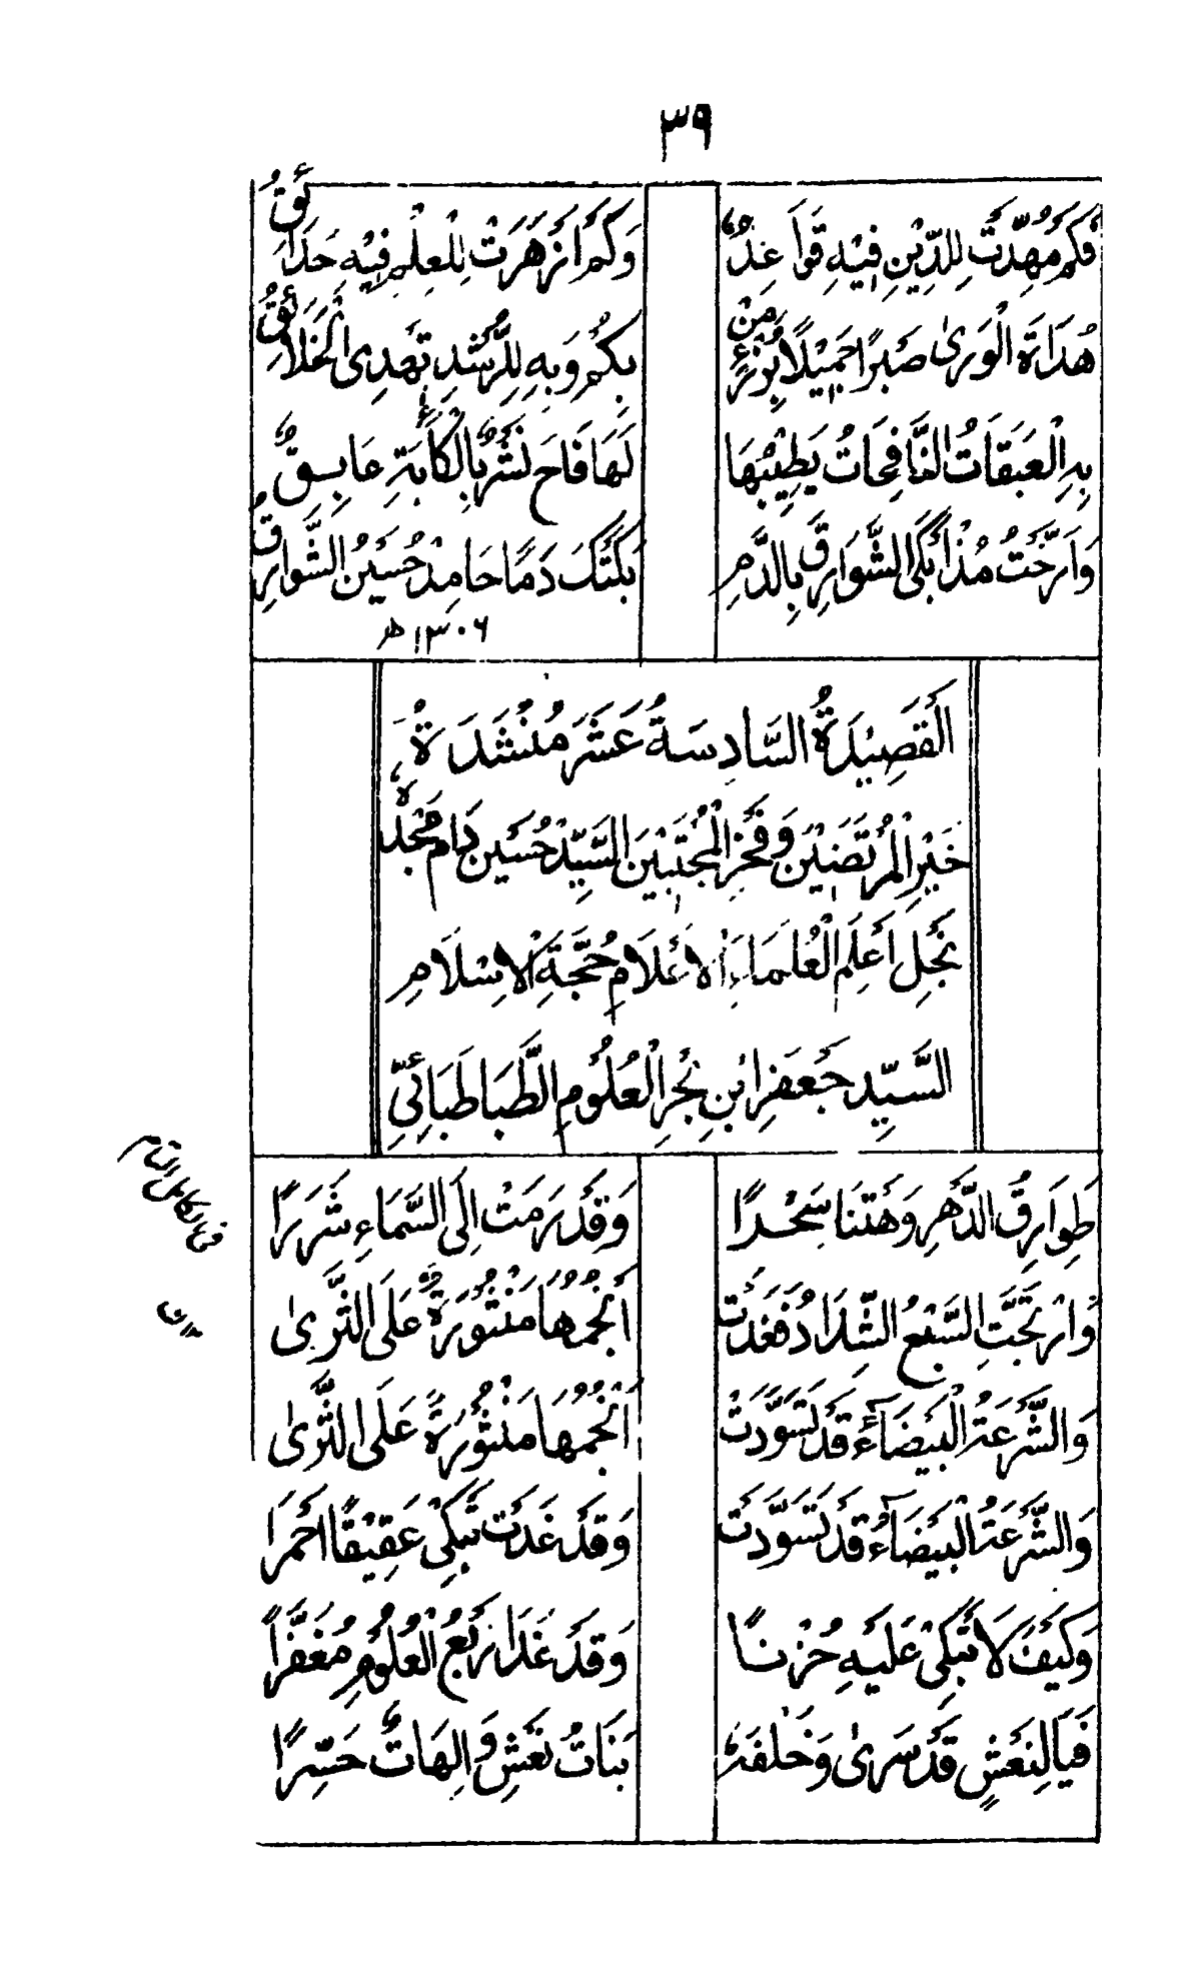 ٣٩
فَكَمْ مُهِّدَتْ لِلدِّيْنِ فِيْهِ قَوَاعِدٌ وَكَمْ اَزْهَرَتْ لِلْعِلْمِ فِيْهِ حَدَائِقُ
هُدَاةَ الْوَرىٰ صَبْرًا جَمِيْلًا بِرُزْءِ مَنْ بِكُمْ وَبِهِ لِلرُّشْدِ تُهْدِى الْخَلَائِقُ
بِهِ الْعَبَقَاتُ النَّافِحَاتُ يَطِيْبُهَا لَهَا فَاحَ نَشْرٌ بِالْكَأٰبَةِ عَابِقٌ
وَاَرَّخْتُ مُذْ اَبْكَى الشَّوَارِقَ بِالدَّمِ بَكَتْكَ دَمًا حَامِدْ حُسَيْنُ الشَّوَارِقُ
١٣٠٦ هـ
اَلْقَصِيْدَةُ السَّادِسَةُ عَشَرَ مُنْشَدَةُ
خَيْرِ الْمُرْتَضَيْنَ وَفَخْرِ الْمُجْتَبَيْنَ السَّيِّدْ حُسَيْن دَامَ مَجْدُهُ
نَجْلِ اَعْلَمِ الْعُلَمَاءِ الْاَعْلَامِ حُجَّةِ الْاِسْلَامِ
السَّيِّد جَعْفَرِ ابْنِ بَحْرِ الْعُلُوْمِ الطَّبَاطَبَائِىِّ
طَوَارِقُ الدَّهْرِ وَهَتْنَا سَحْدًا وَقَدْ رَمَتْ اِلَى السَّمَاءِ شَرَرًا
وَارْتَجَّتِ السَّبْعُ الشِّدَادُ فَغَدَتْ اَنْجُمُهَا مَنْثُوْرَةً عَلَى الثَّرىٰ
وَالشَّرْعَةُ الْبَيْضَآءُ قَدْ تَسَوَّدَتْ اَنْجُمُهَا مَنْثُوْرَةً عَلَى الثَّرىٰ
وَالشَّرْعَةُ الْبَيْضَآءُ قَدْ تَسَوَّدَتْ وَقَدْ غَدَتْ تَبْكِىْ عَقِيْقًا اَحْمَرَا
وَكَيْفَ لَا تَبْكِىْ عَلَيْهِ حُزْنًا وَقَدْ غَدَا رَبْعُ الْعُلُوْمِ مُغَفَّرًا
فَيَا لِنَعْشٍ قَدْ سَرىٰ وَخَلْفَهُ بَنَاتُ نَعْشٍ وَالِهَاتٌ حَسِّرًا
من الكامل التام